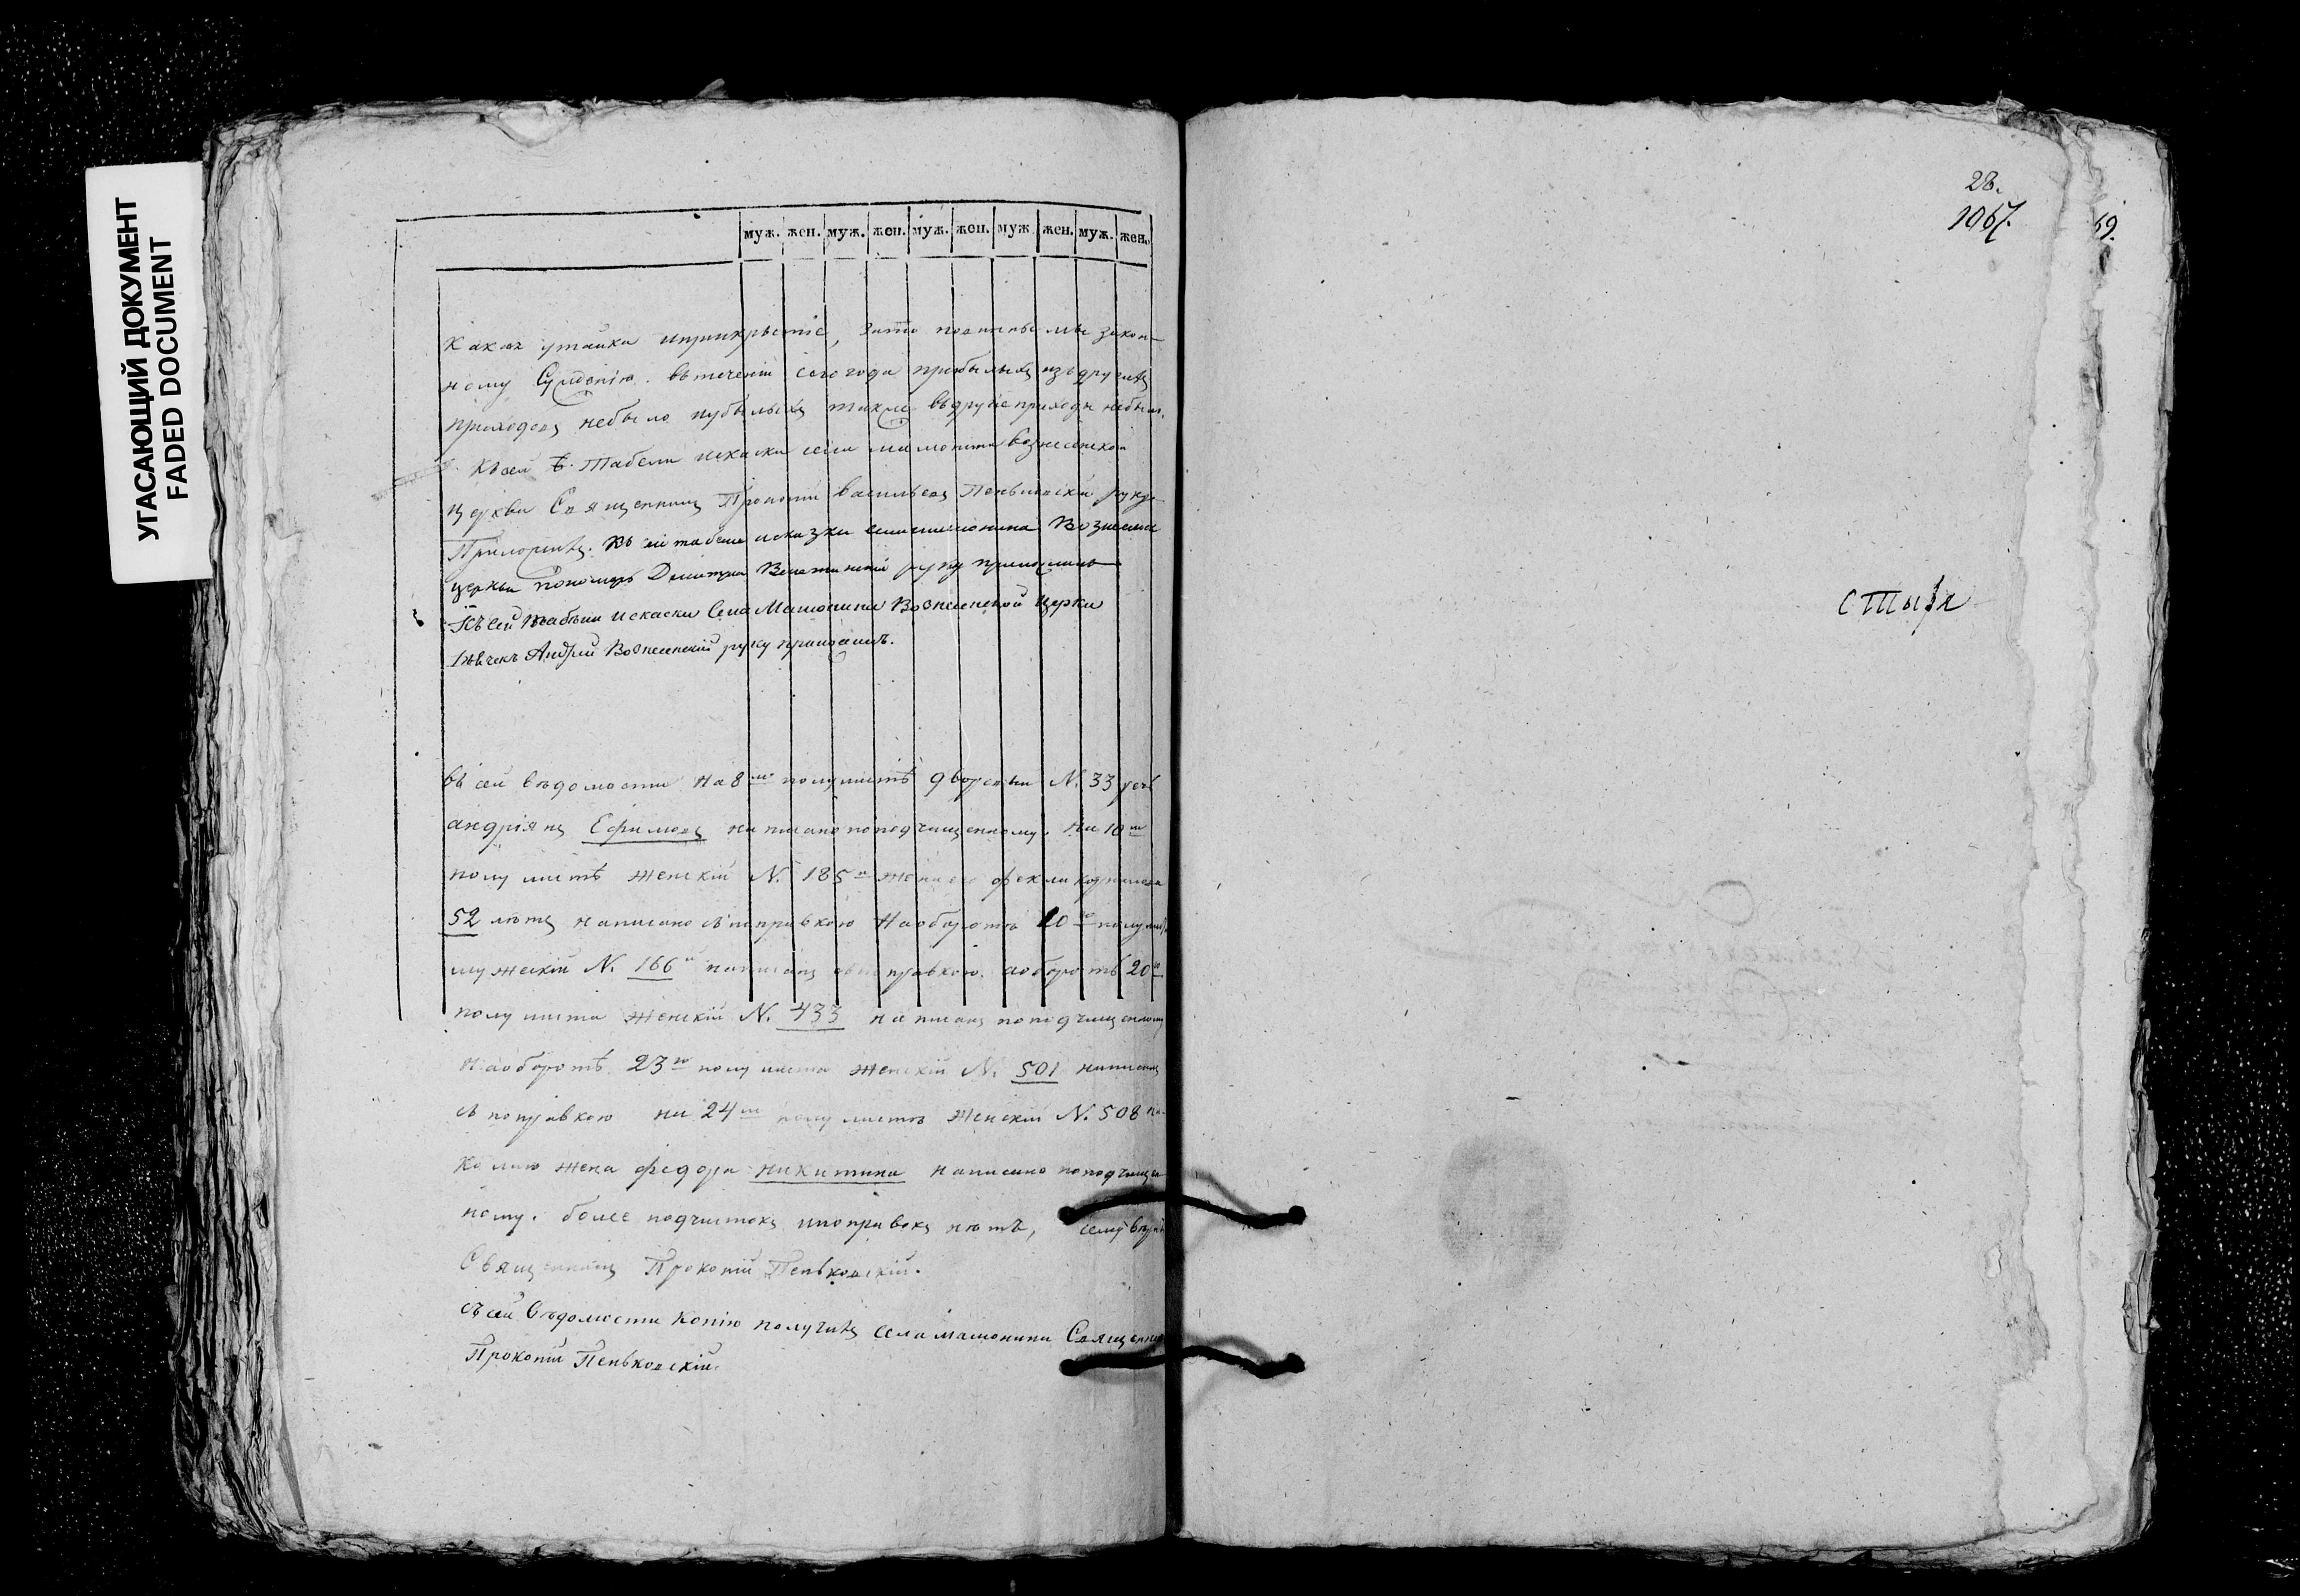 УГАСАЮЩИЙ ДОКУМЕНТ
FADED DOCUMENT
муж. жен. муж. жен. муж. жен. муж жен. муж. жен.
какая утайка иприкрытіе, зато повинны мы закон-
ному Сужденію. втеченіи сего года прибылыхъ изъдругихъ
приходовъ небыло иубылыхъ также въдругіе приходы небыло.
Къ сей Табели искаски села мамонина вознесенской
церкви Священникъ Прокопій васильевъ Пеньковскій руку
Приложилъ. Къ сей табели исказки села мамонина Вознесенс
церкви пономарь Димитрій руку приложилъ
Къ сей табѣли искаски Села Мамонина Вознесенской церкви
Андрѣй Вознесенскій руку приложилъ.
въ сей вѣдомости на 8мъ полулистѣ дворовый N. 33
андріянъ Ефимовъ написано поподчищенному. на 10мъ
полулистѣ женскій N. 185й жена его фекла корнилова
52 лѣтъ написано съпоправкою Наоборотѣ 10го полулис.
мужескій N. 166й написанъ съпоправкою. аоборотѣ 20го
полулиста женскій N. 433 написанъ поподчищенному
наоборотѣ 23го полулиста женскій N. 501 написанъ
съпоправкою на 24мъ полулистѣ женскій N. 508
жена федора никитина написано поподчище
ному. более подчистокъ ипоправокъ нѣтъ, сему вѣрно
Священникъ Прокопій Пеньковскій.
съ сей вѣдомости копію получилъ села мамонина Священник
Прокопій Пеньковскій.
28.
1067.
69.